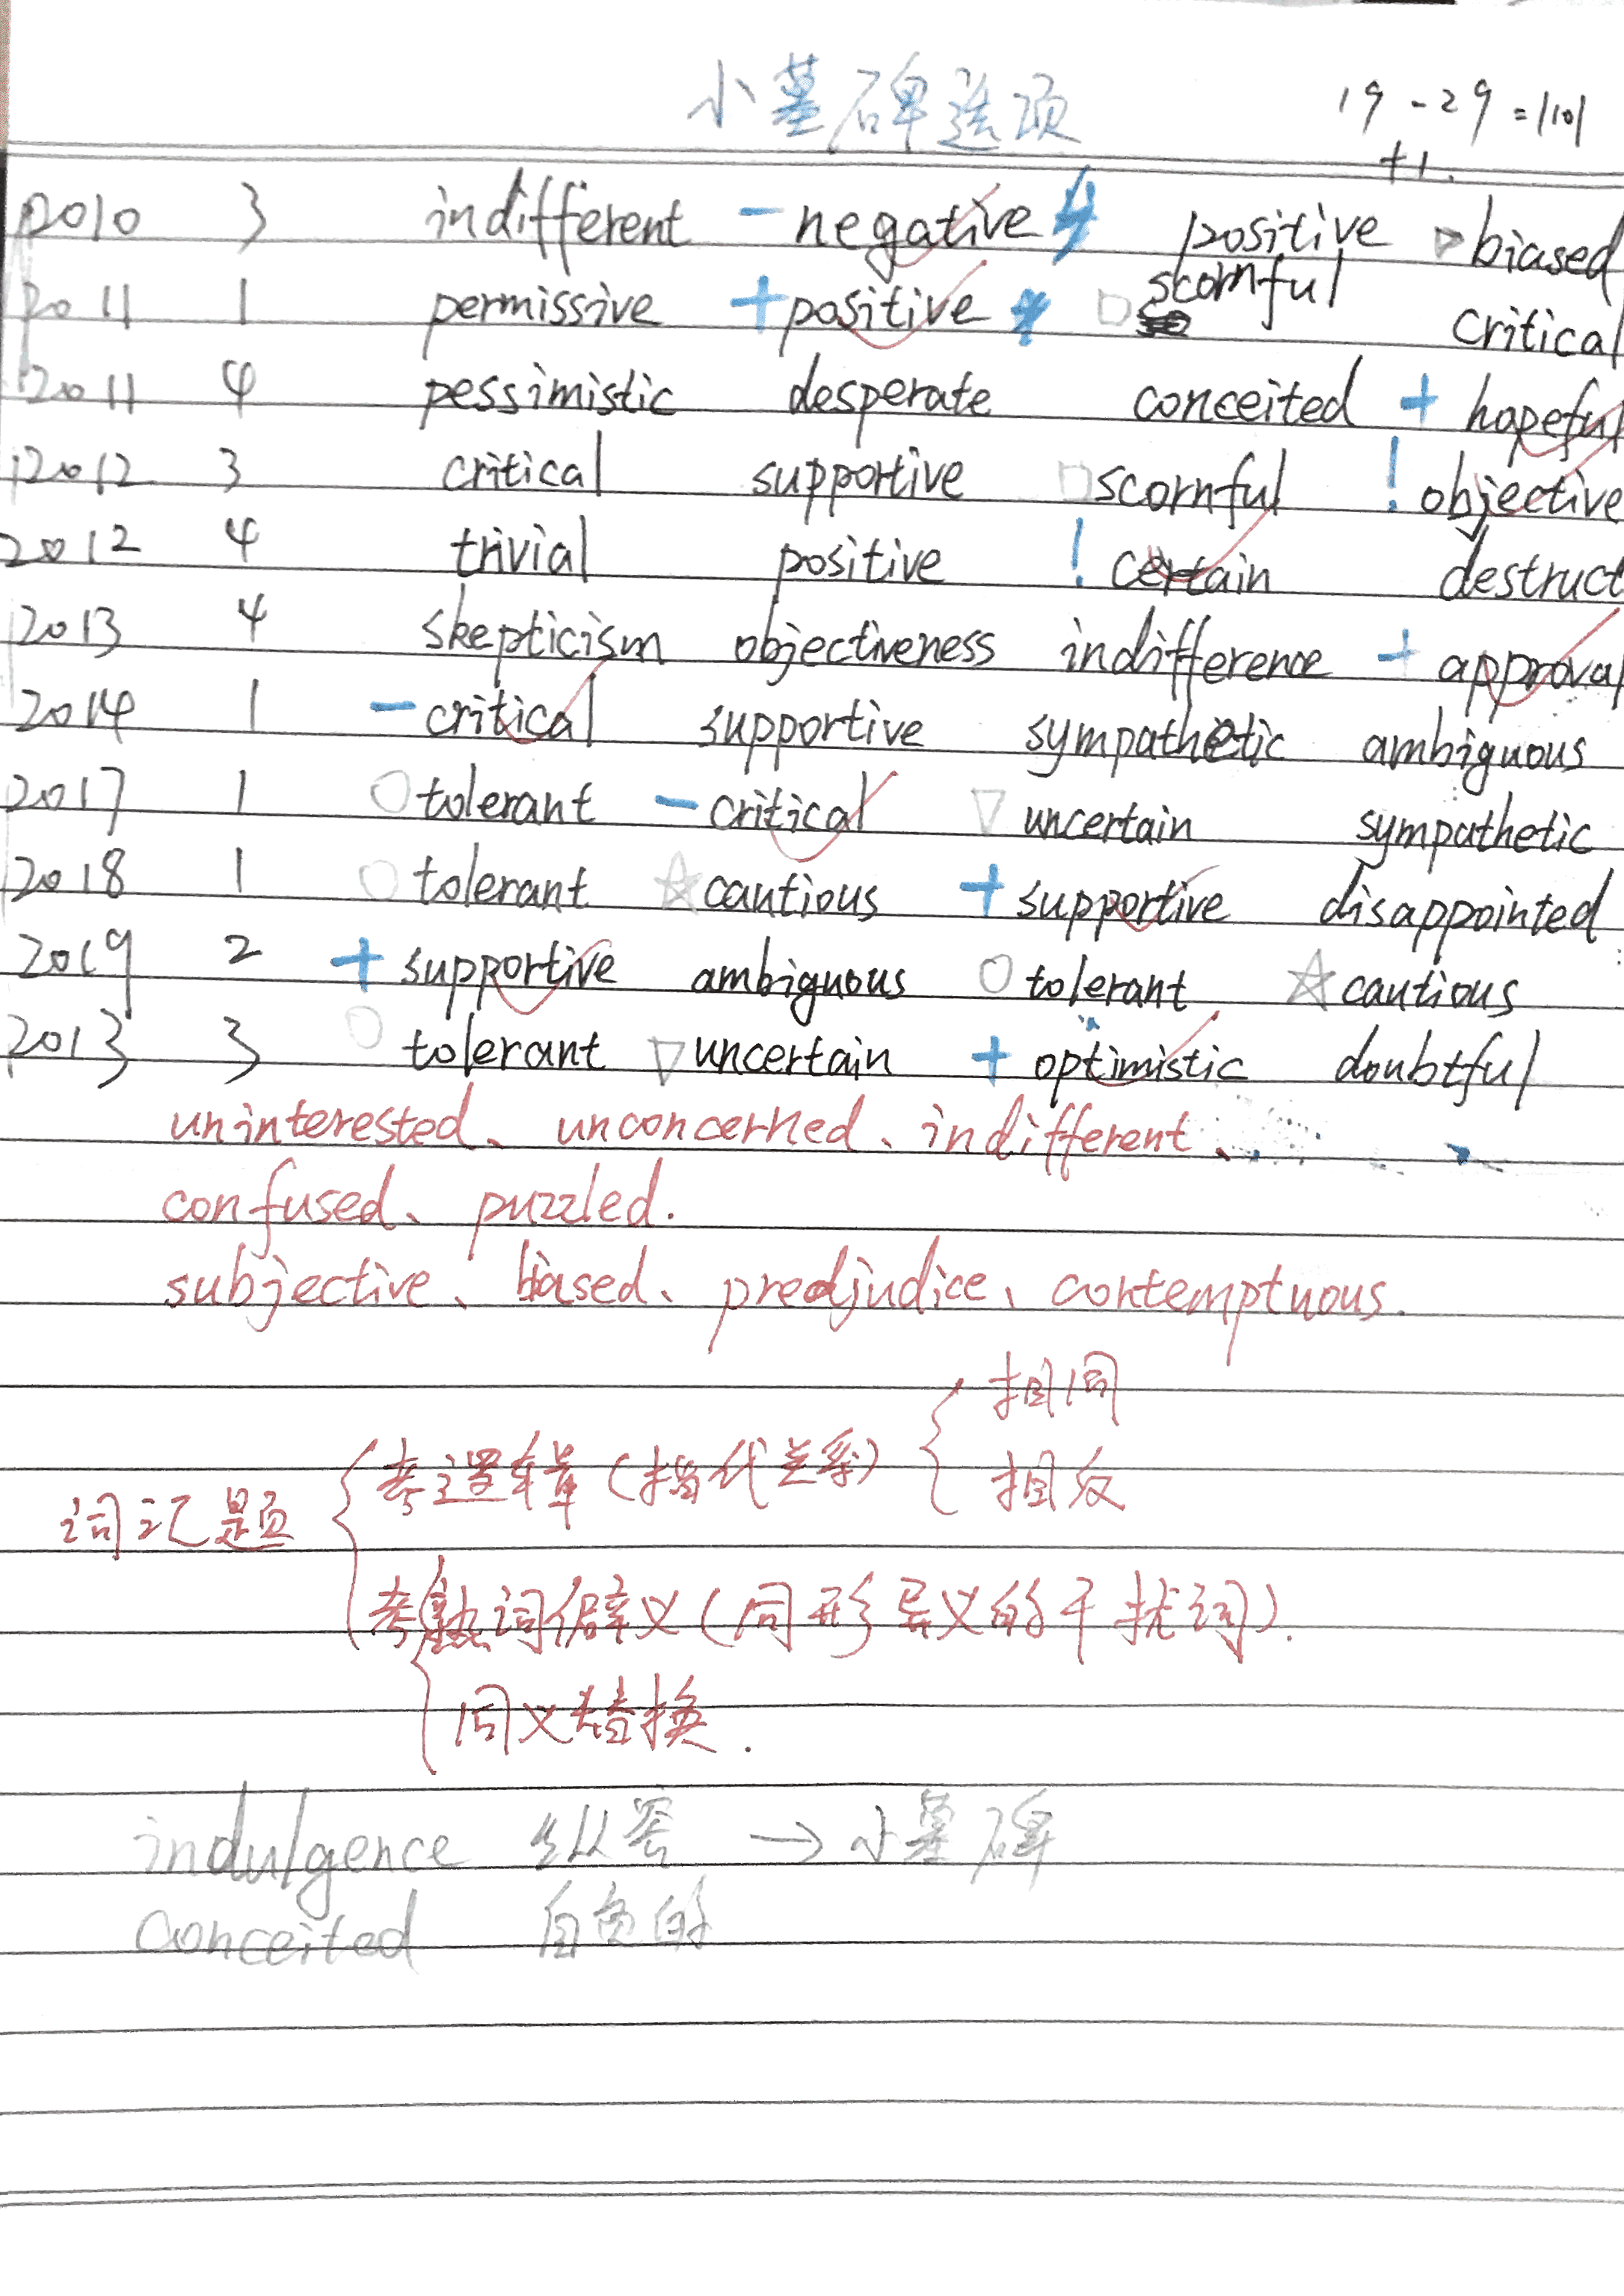 小墓碑选项
19-29=1101
+1.
2010 3 indifferent - negative positive biased
2011 1 permissive + positive scornful critical
2011 4 pessimistic desperate conceited + hopeful
2012 3 critical supportive scornful ! objective
2012 4 trivial positive ! certain destruct
2013 4 skepticism objectiveness indifference + approval
2014 1 - critical supportive sympathetic ambiguous
2017 1 tolerant - critical uncertain sympathetic
2018 1 tolerant cautious + supportive disappointed
2019 2 + supportive ambiguous tolerant cautious
2013 3 tolerant uncertain + optimistic doubtful
uninterested、unconcerned、indifferent、
confused、puzzled.
subjective、biased、predjudice、contemptuous.
相同
考逻辑(指代关系)
相反
词汇题
考熟词僻义(同形异义的干扰词).
同义替换.
indulgence 纵容 → 小墓碑
conceited 自负的